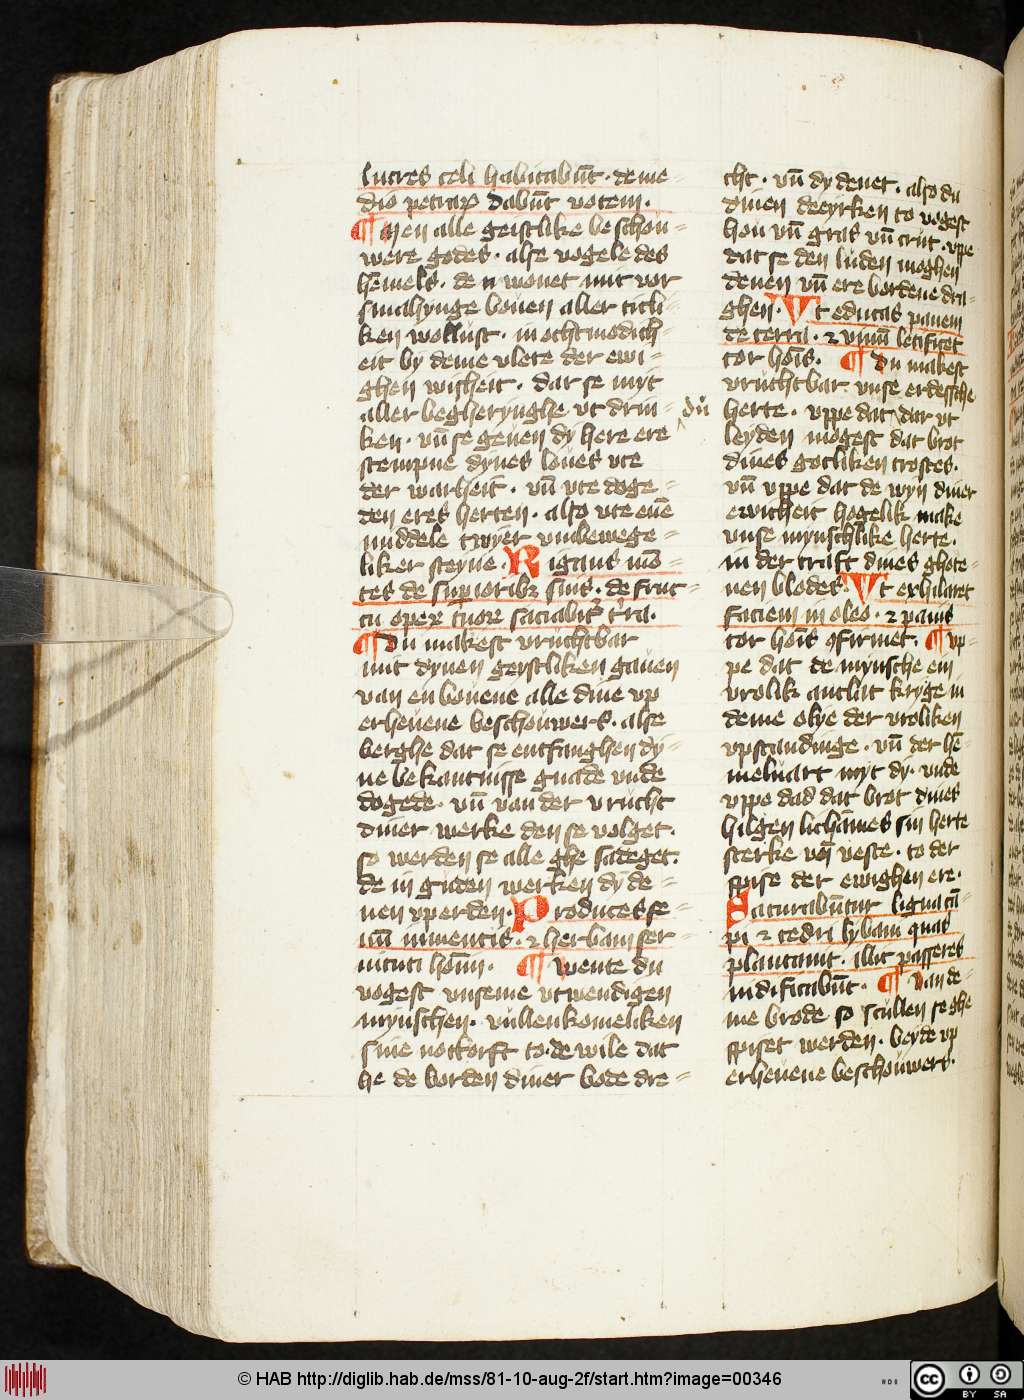 lucres celi habitabūt · de me=
dio petraꝝ dabūt vocem ·
¶ In en alle geistlike beschou=
were godes · alse vogele des
hēmels · de n wonet mit vor
smahynge bouen aller titli=
ken wollust · in othmodich=
eit by deme vlete der ewi=
ghen wisheit · dar se myt
aller begherynghe vt drin=
ken · vn̄ se geuen dy here ere
stempne dynes loues vte
der warheit · vn̄ vte doge=
den eres herten · also vte euē
middele twyer vmbewege=
liker steyne · Rigans mō=
tes de superioribꝫ suis · de fruc=
tu operꝝ tuorꝝ saciabitʳ t'ra ·
¶ Du makest vruchtbar
mit dynen geystliken gauen
van en bouene alle dine vp
erheuene beschouwers · alse
berghe dat se entfanghen dy=
ne bekantnisse gnade vnde
dogede · vn̄ van der vrucht
diner werke den se volget ·
so werden se alle ghe sadeget ·
de in guden werken dy de=
nen vp erden · Producens fe=
nū iumentis · ⁊ herbam ser=
uituti hoīm · ¶ Wente du
vogest vnseme vtwendigen
mynschen · vullenkomeliken
sine nottorft to · de wile dat
he de borden diner bode dre=
cht · vn̄ dy denet · also du
dinen deeyrken to vogest
hou vn̄ gras vn̄ crut · vppe
dat se den luden moghen
denen vn̄ ere bordene dra=
ghen · Vt educas panem
de terra · ⁊ vinū letificet
cor hoīs · ¶ Du makest
vruchtbar vnse erdessche
herte · vppe dat dar vt
du
leyden mogest dat brot
dines gotliken trostes ·
vn̄ vppe dat de wyn diner
ewicheit hogelik make
vnse mynschlike herte ·
in der craft dines ghote=
nen blodes · Vt exhilaret
faciem in oleo · ⁊ panis
cor hoīs ꝯfirmet · ¶ Vp=
pe dat de mynsche ein
vrolik antlat kryge in
deme olye der vroliken
vpstandinge · vn̄ der hē=
meluart myt dy · vnde
vppe dad dat brot dines
hilgen lichāmes sin herte
sterke vn̄ veste · to der
spise der ewighen ere ·
Saturabūtur ligna cā=
pi ⁊ cedri lybani quas
plantauit · illic passeres
nidificabūt · ¶ Van de=
me brode so scullen se ghe
spiset werden · beyde vp
erheuene beschouwers ·
© HAB http://diglib.hab.de/mss/81-10-aug-2f/start.htm?image=00346
BY SA